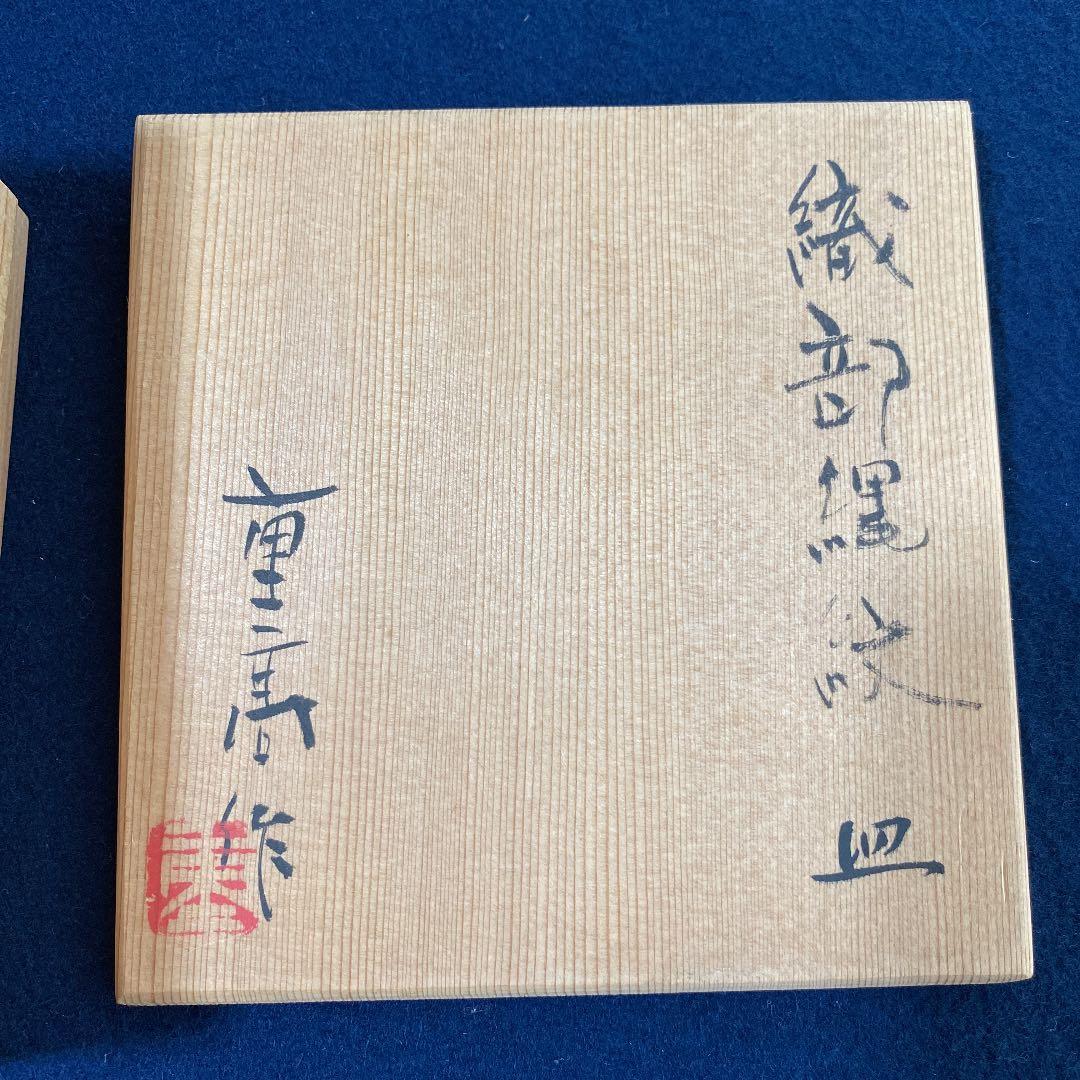 織部縄紋 皿
重高作